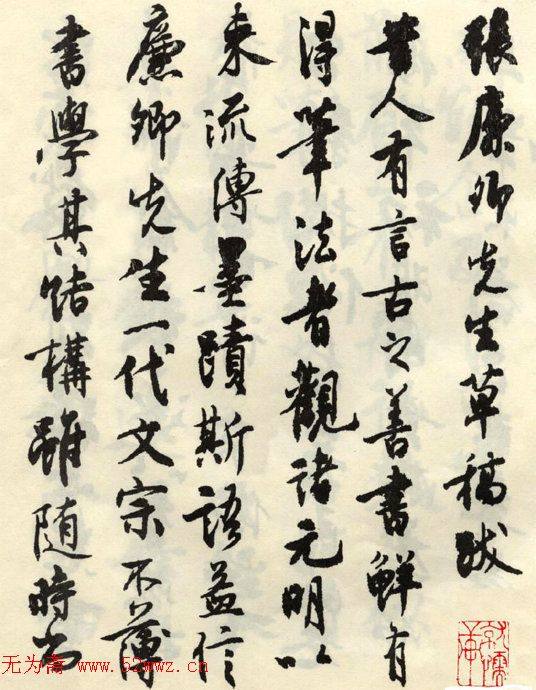 張廉卿先生草稿跋
昔人有言古之善書鮮有
得筆法者觀諸元明以
來流傳墨蹟斯語益信
廉卿先生一代文宗不薄
書學其結構雖隨時尚
无为斋 www.52mwz.cn